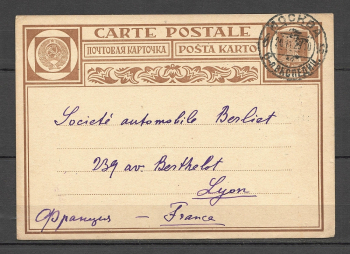 CARTE POSTALE
ПОЧТОВАЯ КАРТОЧКА POŜTA KARTO
МОСКВА
Societé automobile Berliet
239 av. Berthelot
Lyon
Франция — France